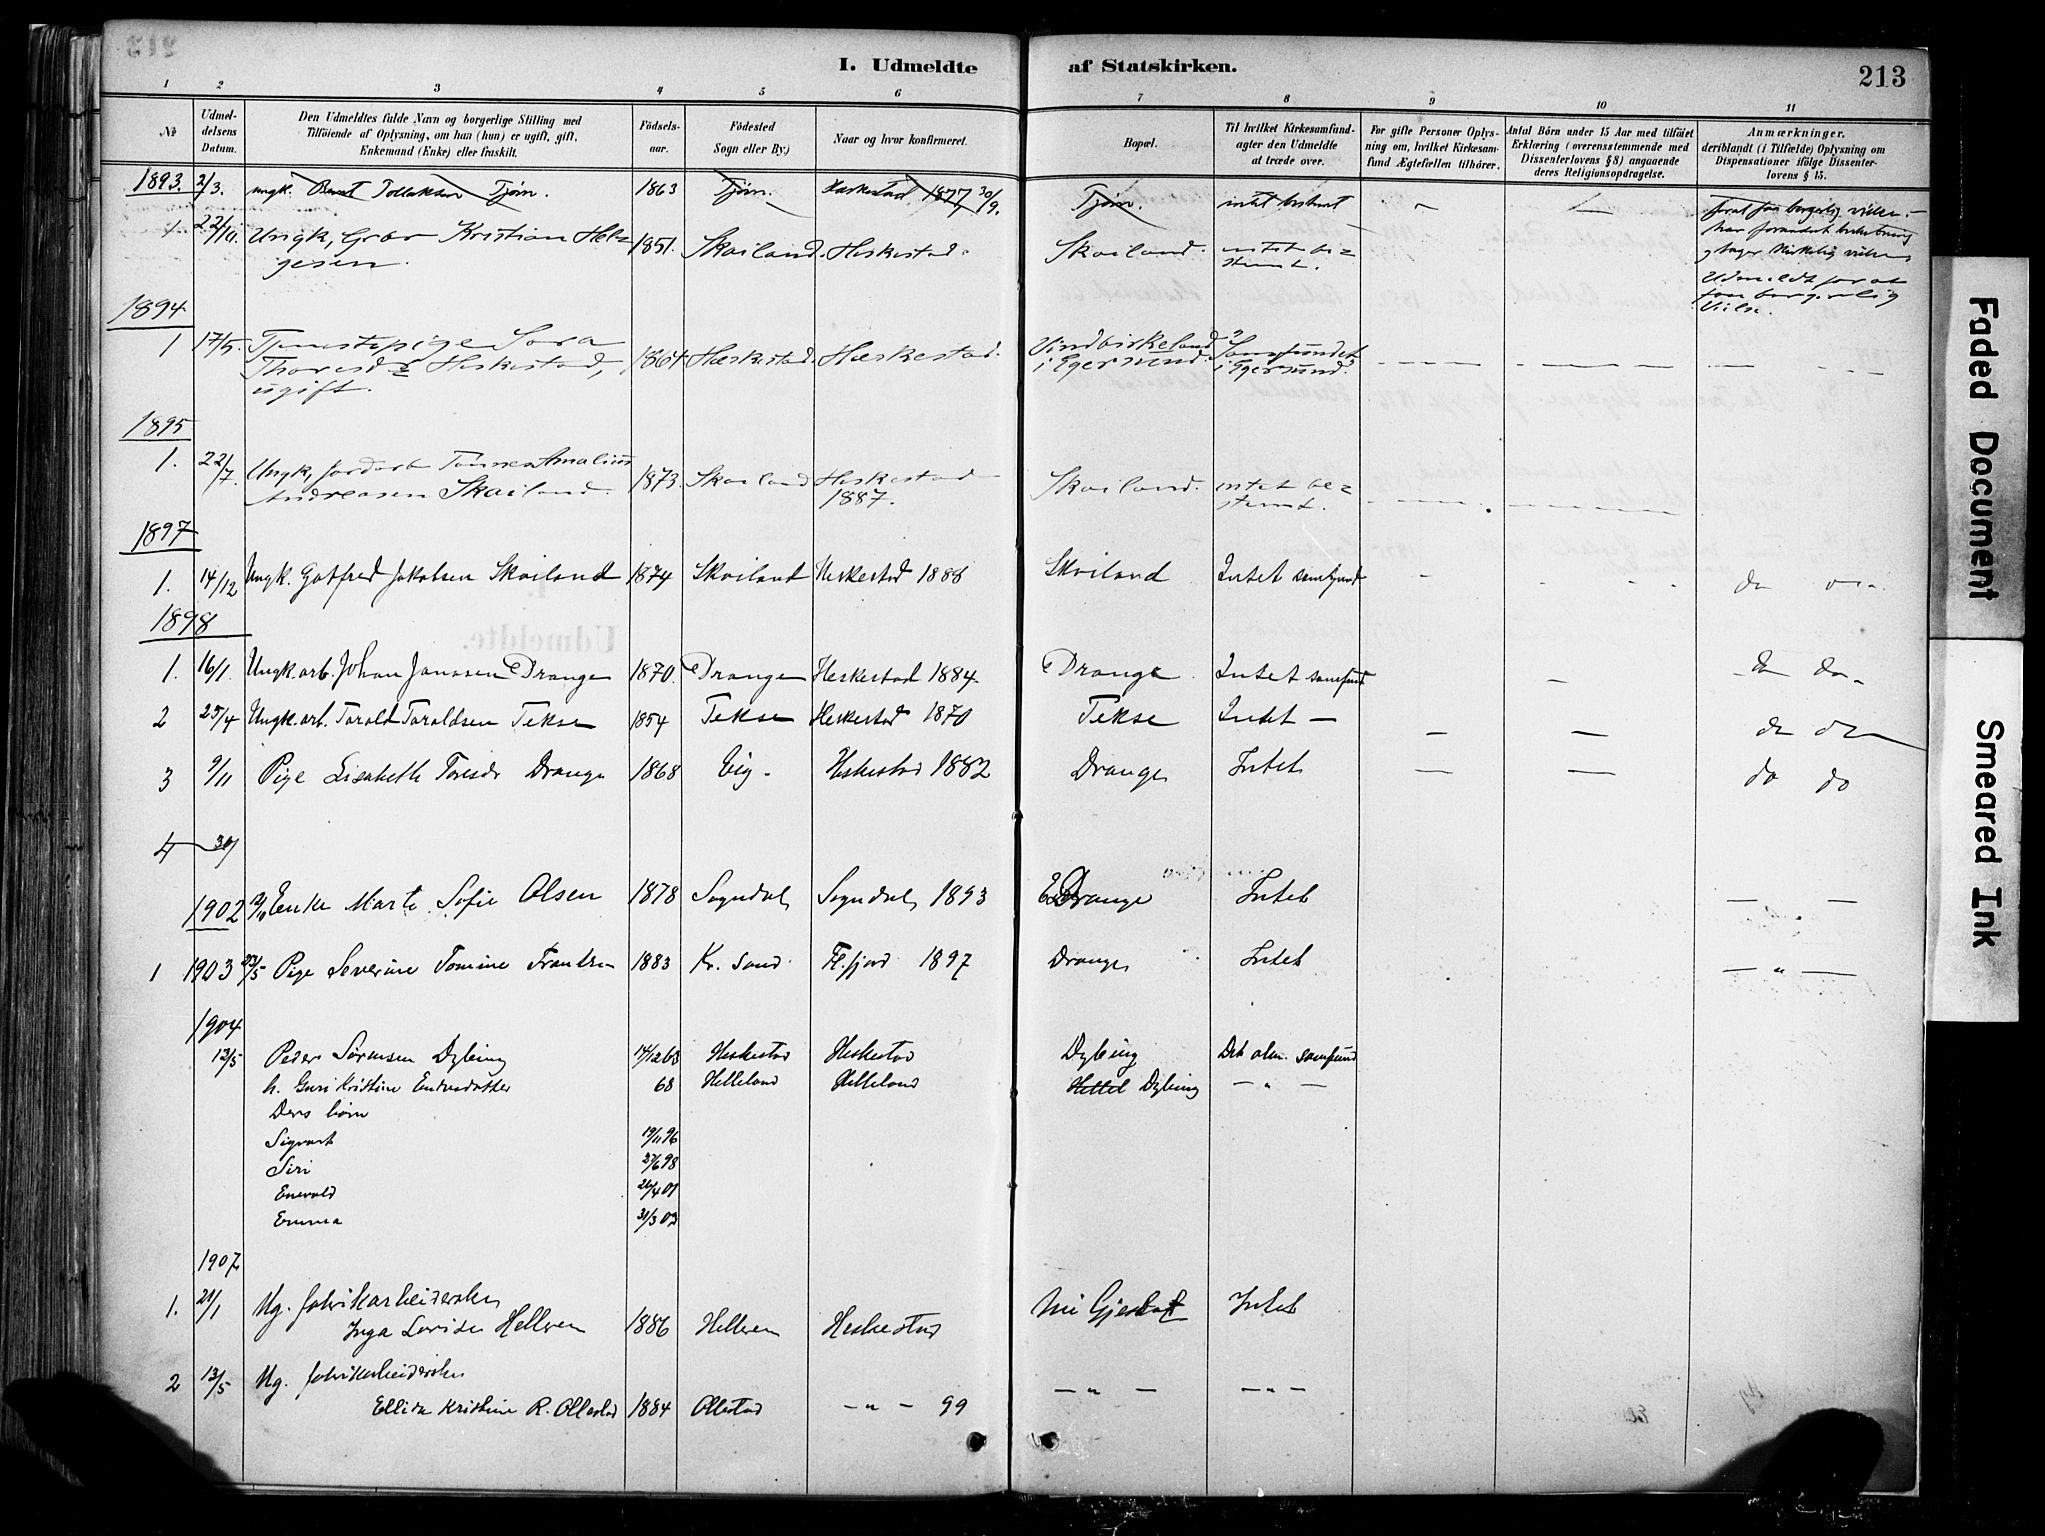 I. Udmeldte af Statskirken.
213
1 2 3 4 5 6 7 8 9 10 11
No
Udmel-
delsens
Datum.
Den Udmeldtes fulde Navn og borgerlige Stilling med
Tilföiende af Oplysning, om han (hun) er ugift, gift,
Enkemand (Enke) eller fraskilt.
Födsels-
aar.
Födested
Sogn eller By.)
Naar og hvor konfirmeret.
Bopæl.
Til hvilket Kirkesamfund
agter den Udmeldte
at træde over.
For gifte Personer Oplys-
ning om, hvilket Kirkesam-
fund Ægtefællen tilhörer.
Antal Börn under 15 Aar med tilföiet
Erklæring (overensstemmende med
Dissenterlovens § 8) angaaende
deres Religionsopdragelse.
Anmærkninger,
deriblandt (i Tilfælde) Oplysning om
Dispensationer ifölge Dissenter-
lovens § 15.
1893. 2/3. ungk. Bernt Tollaksen Tjörn. 1863 Tjörn. Heskestad 1877 30/9. Tjörn. intet bestemt
for at faa borgerlig vielse.
har forandret beslutning
og tager kirkelig vielse
22/10. Ungk, Kristian Hel=
gesen. 1851. Skailand. Heskestad. Skailand. intet be=
stemt.
Udmeldt for at
faa borgerlig
Vielse.
1894
1 17/5. Tjenestepige Sara
Thoresdr Heskestad,
ugift. 1864 Heskestad. Heskestad. Vindbirkeland
i Egersund. Samfundet
i Egersund.
1895
1. 22/7. Ungk, Tönnes Amalius
Andreasen Skailand. 1873. Skailand Heskestad
1887. Skailand. intet be=
stemt.
1897
1. 14/12 Ungk. Gotfred Jakobsen Skailand 1874 Skailand Heskestad 1888 Skailand Intet samfund do do
1898
1. 16/1. Ungk. arb. Johan Janssen Drange 1870. Drange Heskestad 1884 Drange Intet samfund do do
2 25/4 Ungk. arb. Tarald Taraldsen Tekse 1854 Tekse Heskestad 1870 Tekse Intet — do do
3 9/11 Pige Lisabeth Toresdr Drange 1868 Eig Heskestad 1882 Drange Intet do do
4 30/
1902 Enke Marte Sofie Olsen 1878 Sogndal Sogndal 1893 Drange Intet — " —
1 1903 23/5 Pige Severine Tomine Frantzen 1883 Kr. sand Fl. fjord 1897 Drange Intet — " —
1904
13/5 Peder Sörensen Dybing 14/12 63 Heskestad Heskestad Dybing Det alm. samfund
h. Guri Kristine Endresdatter 68 Helleland Helleland Dybing — " —
Ders börn
Sigvart 19/11 96
Siri 27/6 98
Enevald 26/4 01
Emma 31/3 03
1907
1. 21/1 Ug. fabrikarbeiderske
Inga Lovise Helleren 1886 Helleren Heskestad Intet
2 13/5 Ug. fabrikarbeiderske
Ellida Kristine R. Ollestad 1884 Ollestad — " — 99 — " — — " —
Faded Document
Smeared Ink